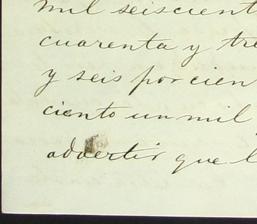 mil seiscient
cuarenta y tre
y seis por cien
ciento un mil
advertir que l